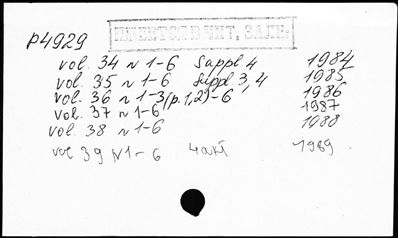 ИМЕЕТСЯ В ЧИТ. ЗАЛЕ
P4929
vol. 34 n 1-6 Suppl 4 1984
vol. 35 n 1-6 Suppl 3,4 1985
vol. 36 n 1-3(p.1,2)-6 1986
vol. 37 n 1-6 1987
vol. 38 n 1-6 1988
vol 39 N1-6 1989